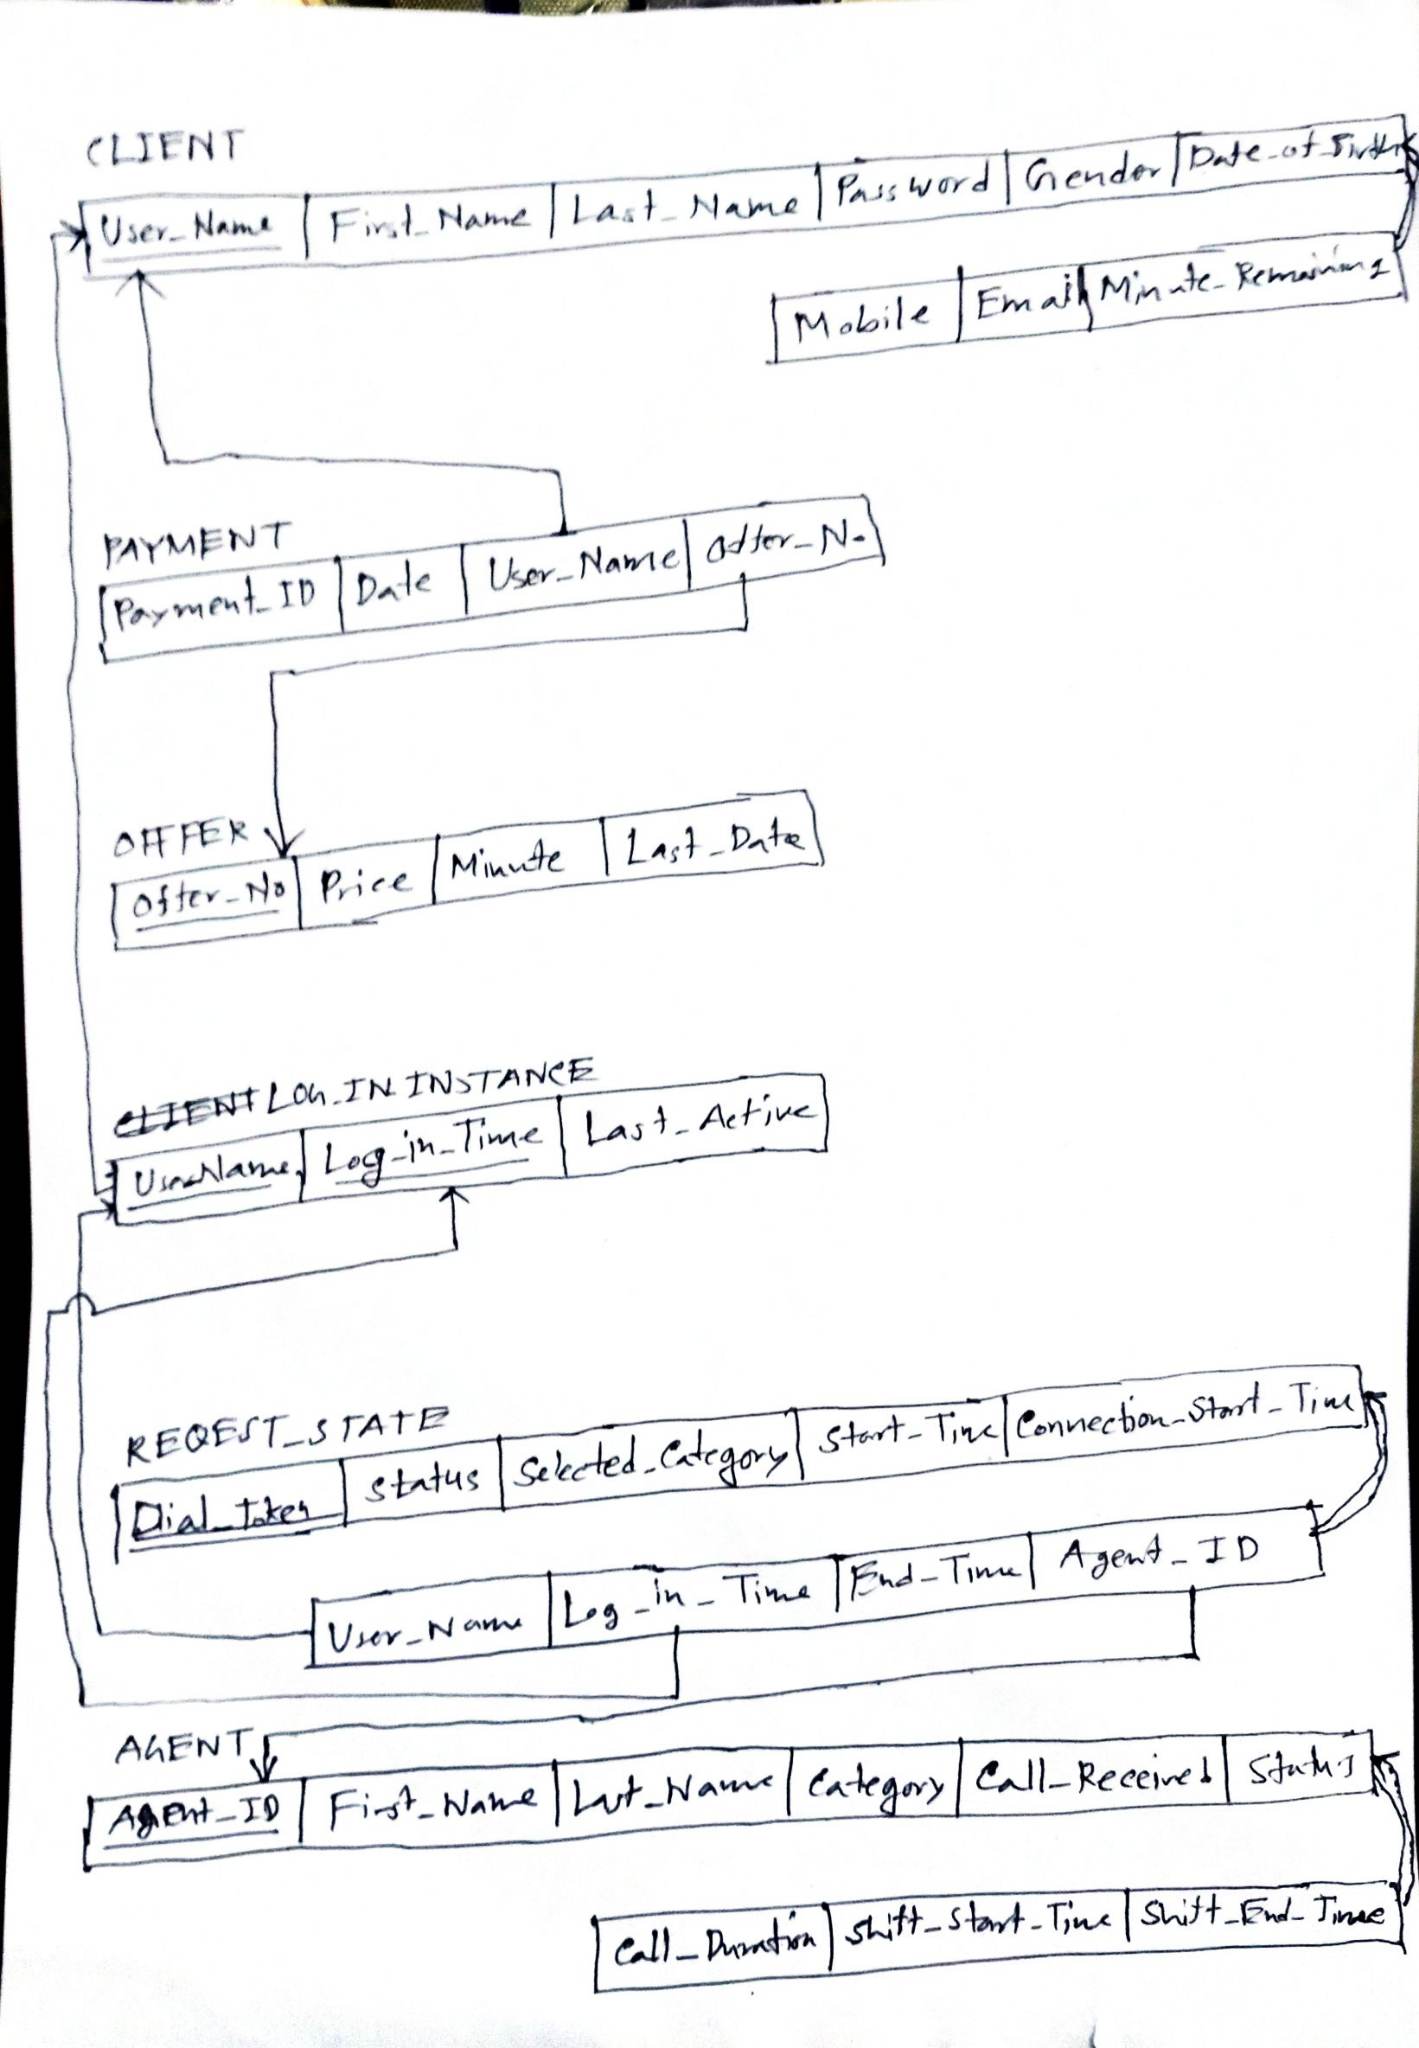 CLIENT
User_Name First_Name Last_Name Password Gender Date_of_Birth
Mobile Email Minute_Remaining
PAYMENT
Payment_ID Date User_Name Offer_No
OFFER
Offer_No Price Minute Last_Date
CLIENT LOG_IN INSTANCE
UserName Log_in_Time Last_Active
REQEST_STATE
Dial_Token Status Selected_Category Start_Time Connection_Start_Time
User_Name Log_in_Time End_Time Agent_ID
AGENT
Agent_ID First_Name Last_Name Category Call_Received Status
Call_Duration Shift_Start_Time Shift_End_Time